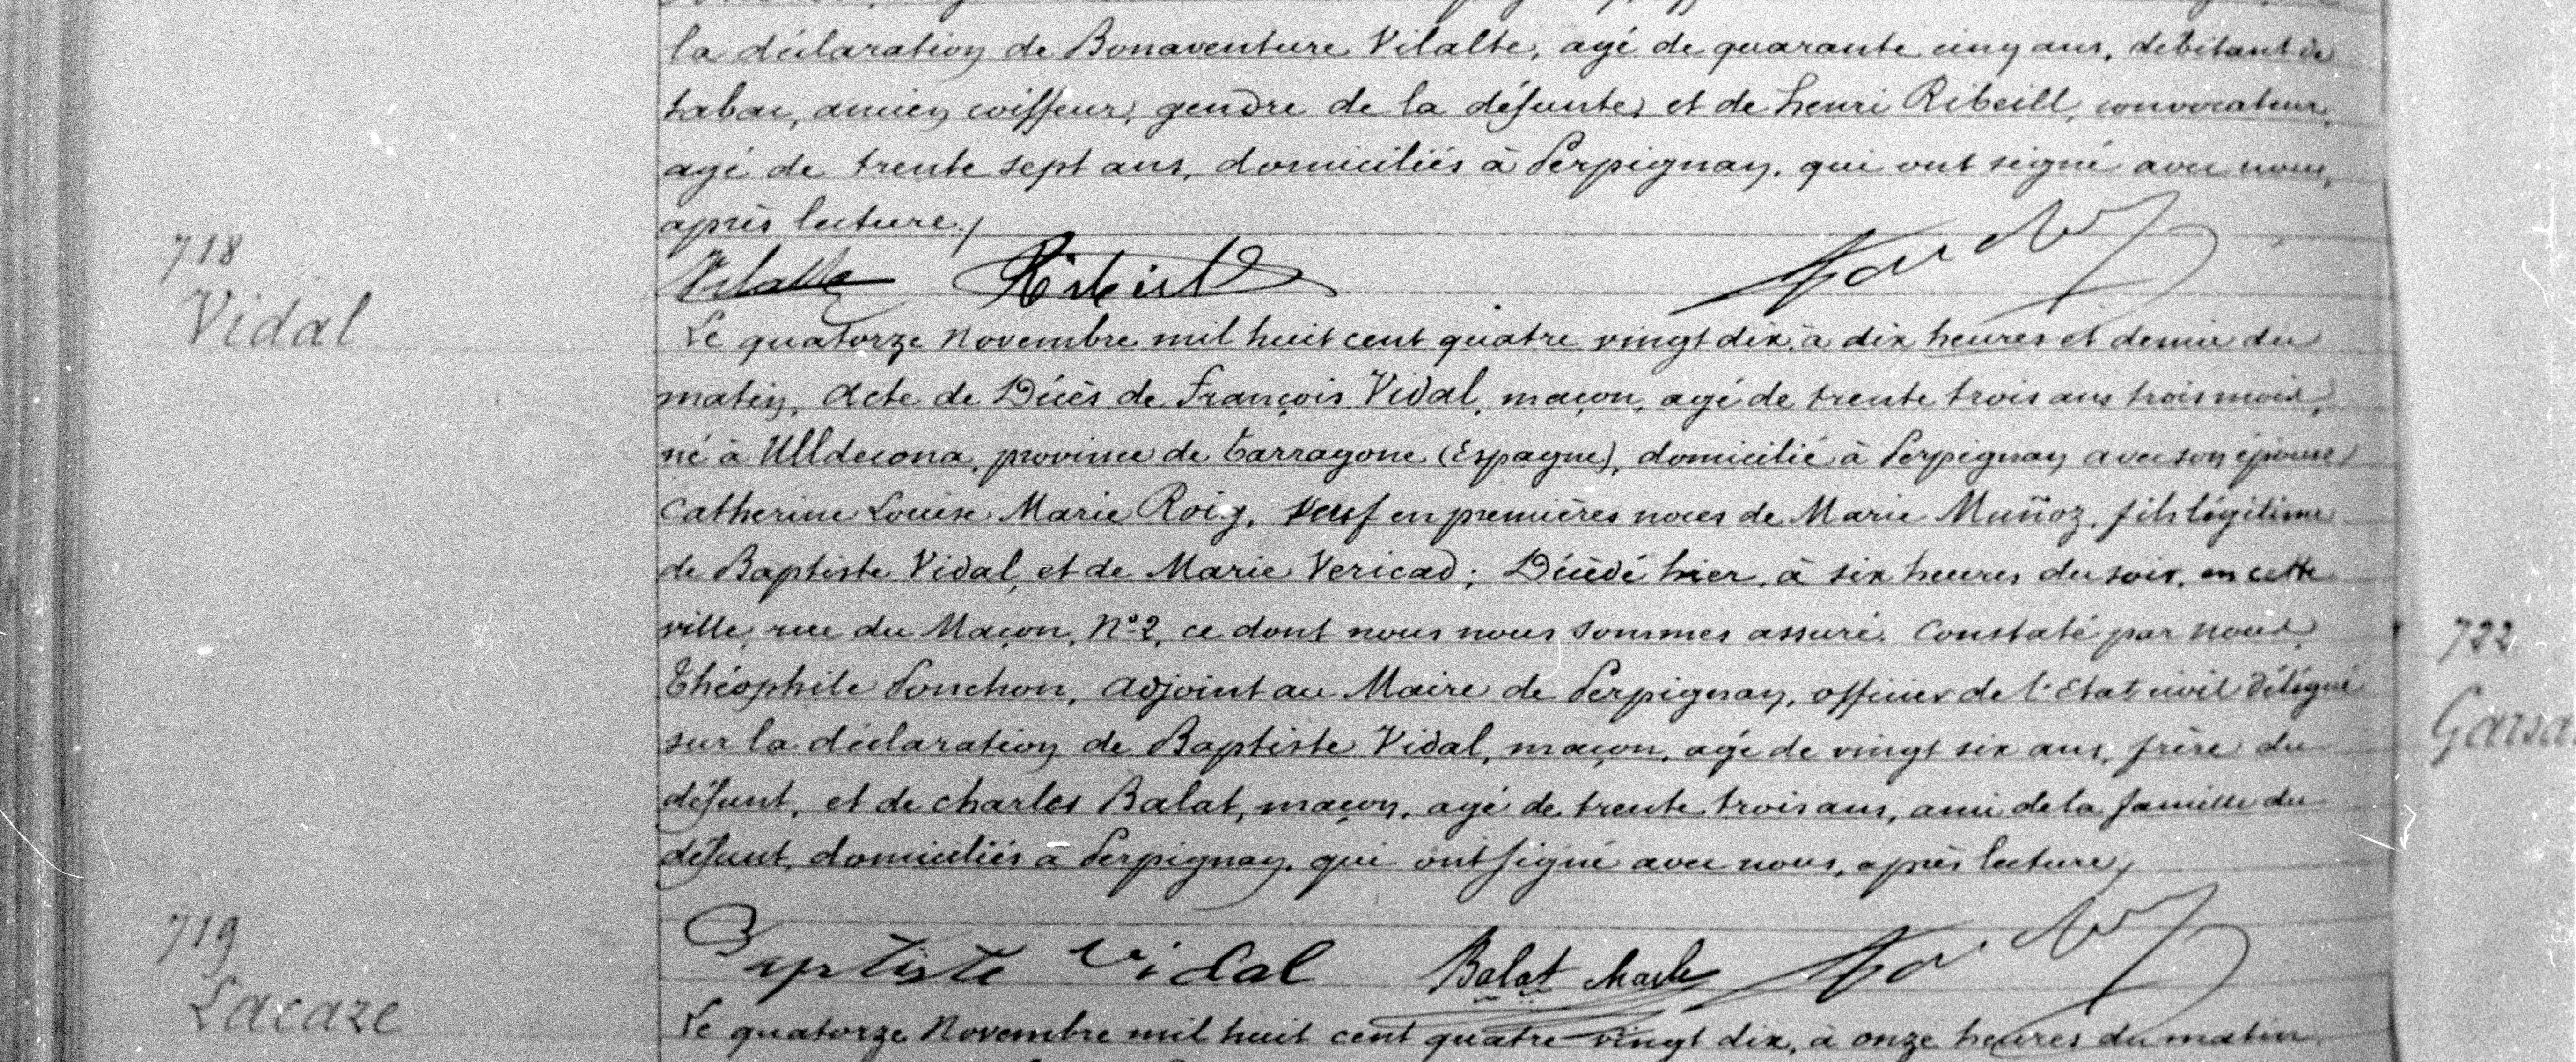 la déclaration de Bonaventure Vilalte, agé de quarante cinq ans, débitant de
tabac, ancien coiffeur, gendre de la défunte, et de henri Ribeill, convocateur,
agé de trente sept ans, domiciliés à Perpignan, qui ont signé avec nous,
après lecture./
718
Vidal
Vilalte Ribeill
Le quatorze Novembre mil huit cent quatre vingt dix, à dix heures et demie du
matin, Acte de Décès de François Vidal, maçon, agé de trente trois ans trois mois,
né à Ulldecona, province de Tarragone (Espagne), domicilié à Perpignan avec son épouse
Catherine Louise Marie Roig, veuf en premières noces de Marie Muñoz, fils légitime
de Baptiste Vidal, et de Marie Vericad; Décédé hier, à six heures du soir, en cette
ville, rue du Maçon, Nº 2, ce dont nous nous sommes assuré. Constaté par nous,
Théophile Ponchon, Adjoint au Maire de Perpignan, officier de l'Etat civil délégué
sur la déclaration de Baptiste Vidal, maçon, agé de vingt six ans, frère du
défunt, et de charles Balat, maçon, agé de trente trois ans, ami de la famille du
défunt, domiciliés à Perpignan, qui ont signé avec nous, après lecture,
Baptiste Vidal Balat Charles
719
Lacaze
Le quatorze Novembre mil huit cent quatre vingt dix, à onze heures du matin
722